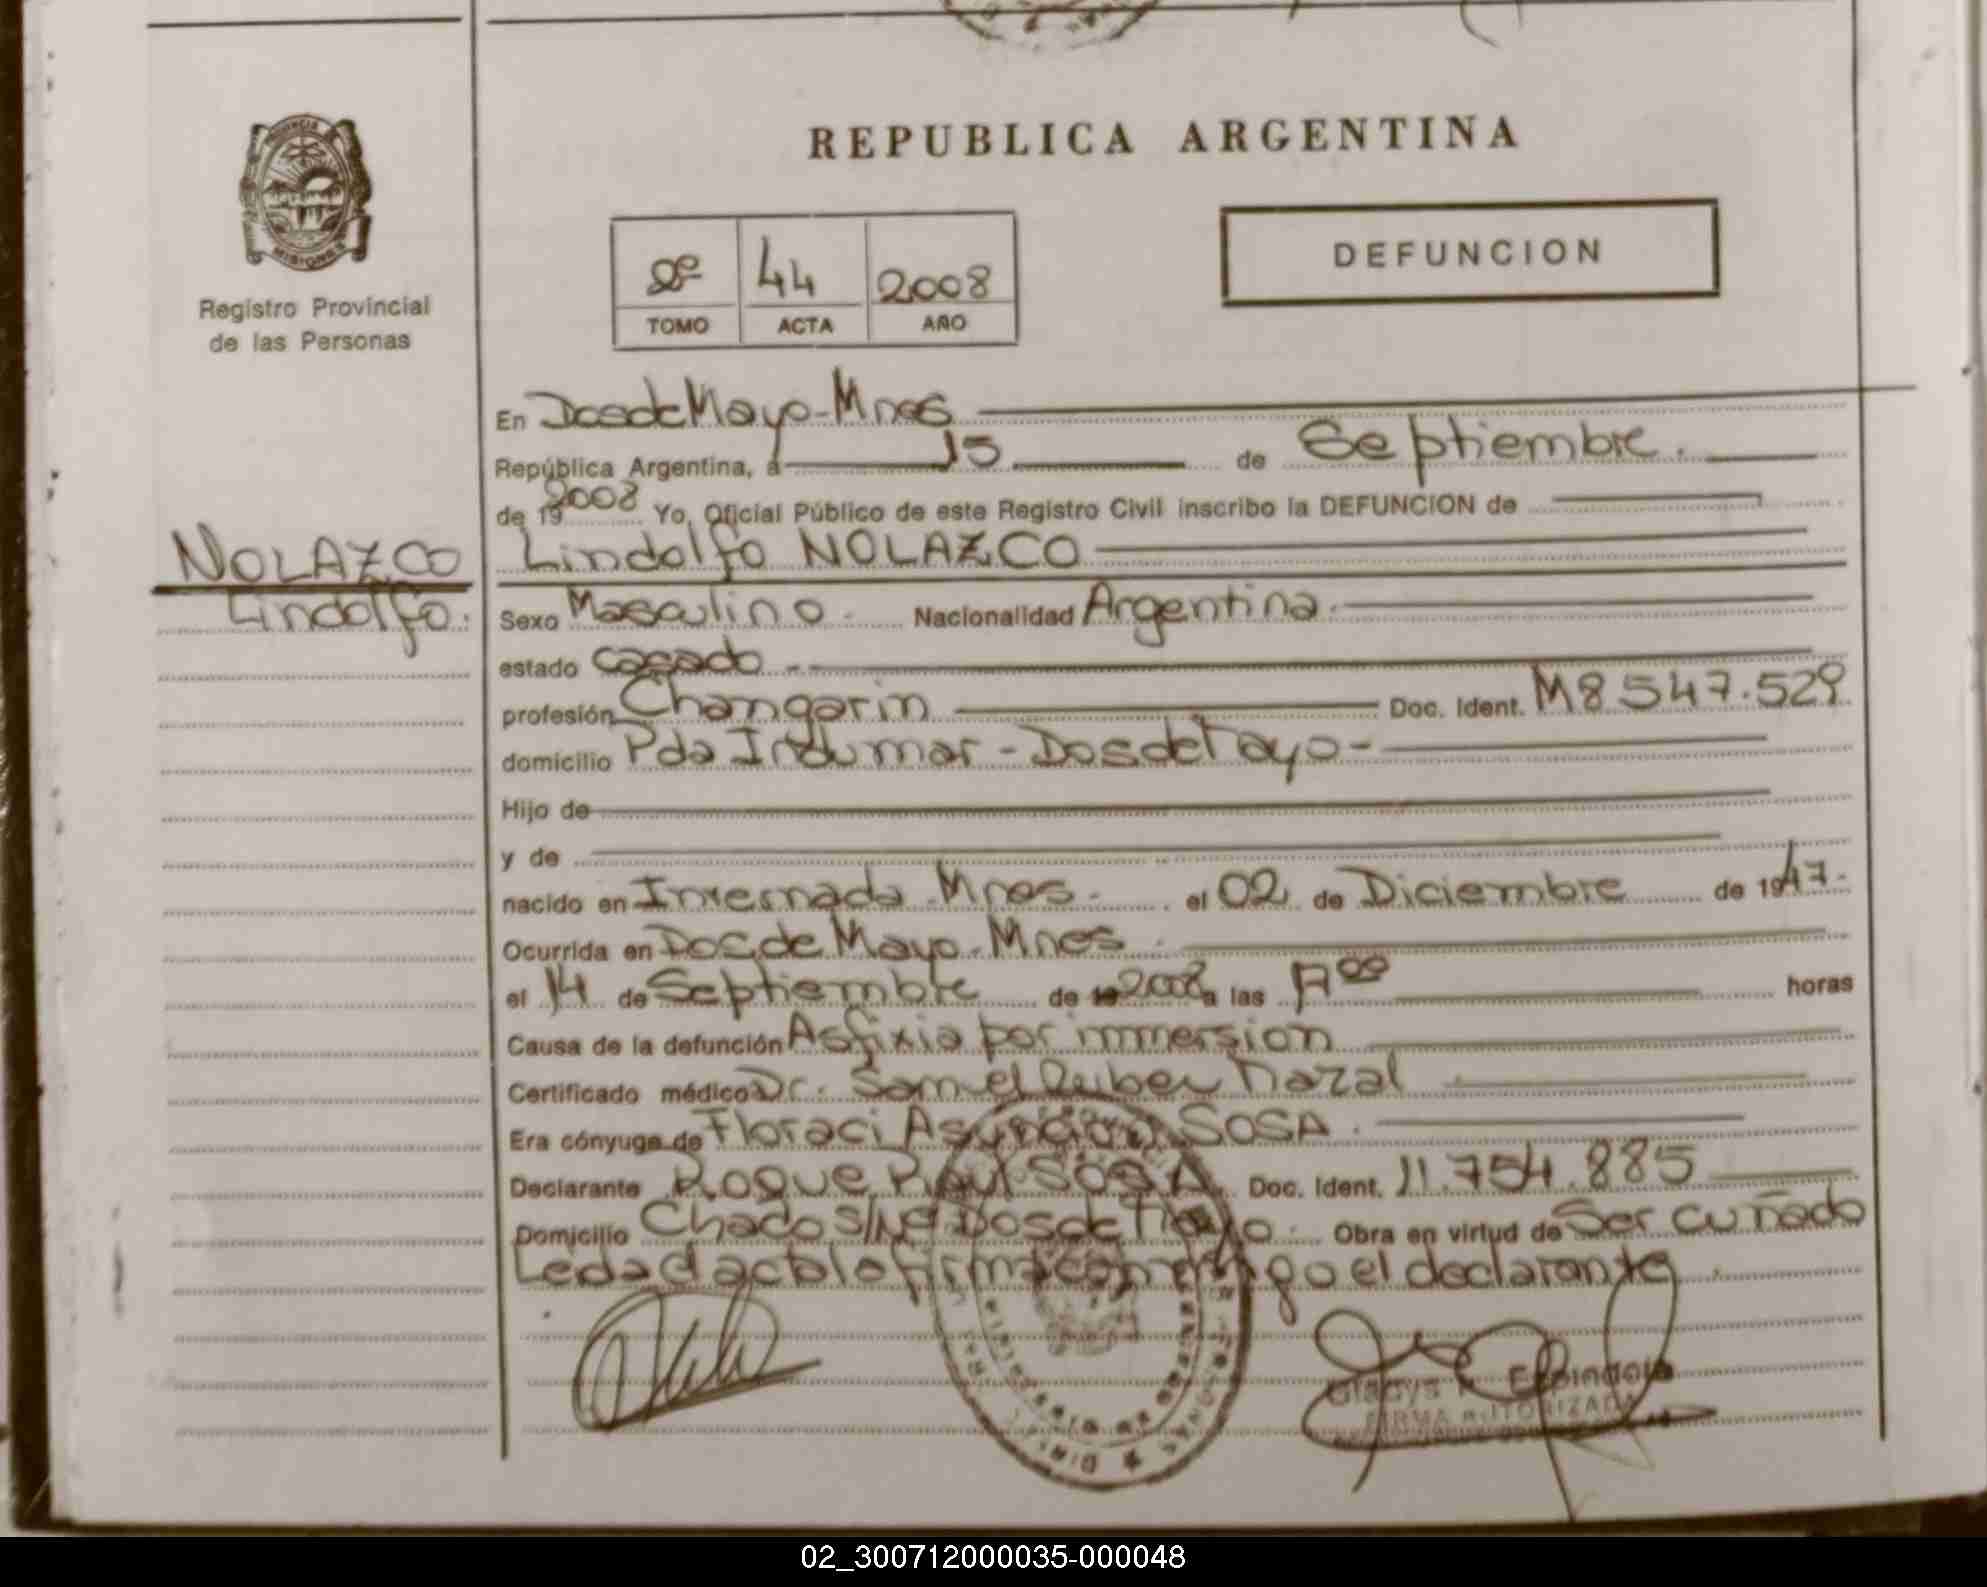 REPUBLICA ARGENTINA
DEFUNCION
Registro Provincial
de las Personas
44 2008
TOMO ACTA AÑO
En Dos de Mayo - Mnes
República Argentina, a 15 de Septiembre.
de 19 2008 Yo, Oficial Público de este Registro Civil inscribo la DEFUNCION de
NOLAZCO
Lindolfo.
Lindolfo NOLAZCO
Sexo Masculino. Nacionalidad Argentina.
estado casado
profesión Changarin Doc. Ident. M8547.529
domicilio Pda Indumar - Dos de Mayo -
Hijo de
y de
nacido en Invernada Mnes. el 02 de Diciembre de 1947.
Ocurrida en Dos de Mayo. Mnes.
el 14 de Septiembre de 19 2008 a las horas
Causa de la defunción Asfixia por immersion
Certificado médico Dr. Ruben
Era cónyuge de Floraci Asuncion SOSA.
Declarante Roque Raul SOSA Doc. Ident. 11.754.885
Domicilio S/Nº Dos de Mayo. Obra en virtud de Ser cuñado
Leda el acta la firma conmigo el declarante.
Gladys Espindola
FIRMA AUTORIZADA
02_300712000035-000048